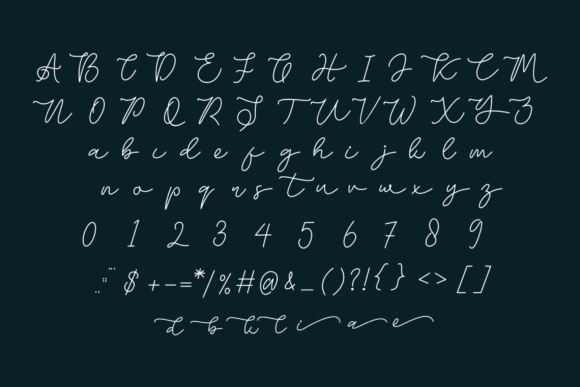 A B C D E F G H I J K L M
N O P Q R S T U V W X Y Z
a b c d e f g h i j k l m
n o p q r s t u v w x y z
0 1 2 3 4 5 6 7 8 9
$ + - = * / % # @ & _ ( ) ? ! { } < > [ ]
d b k l i a e